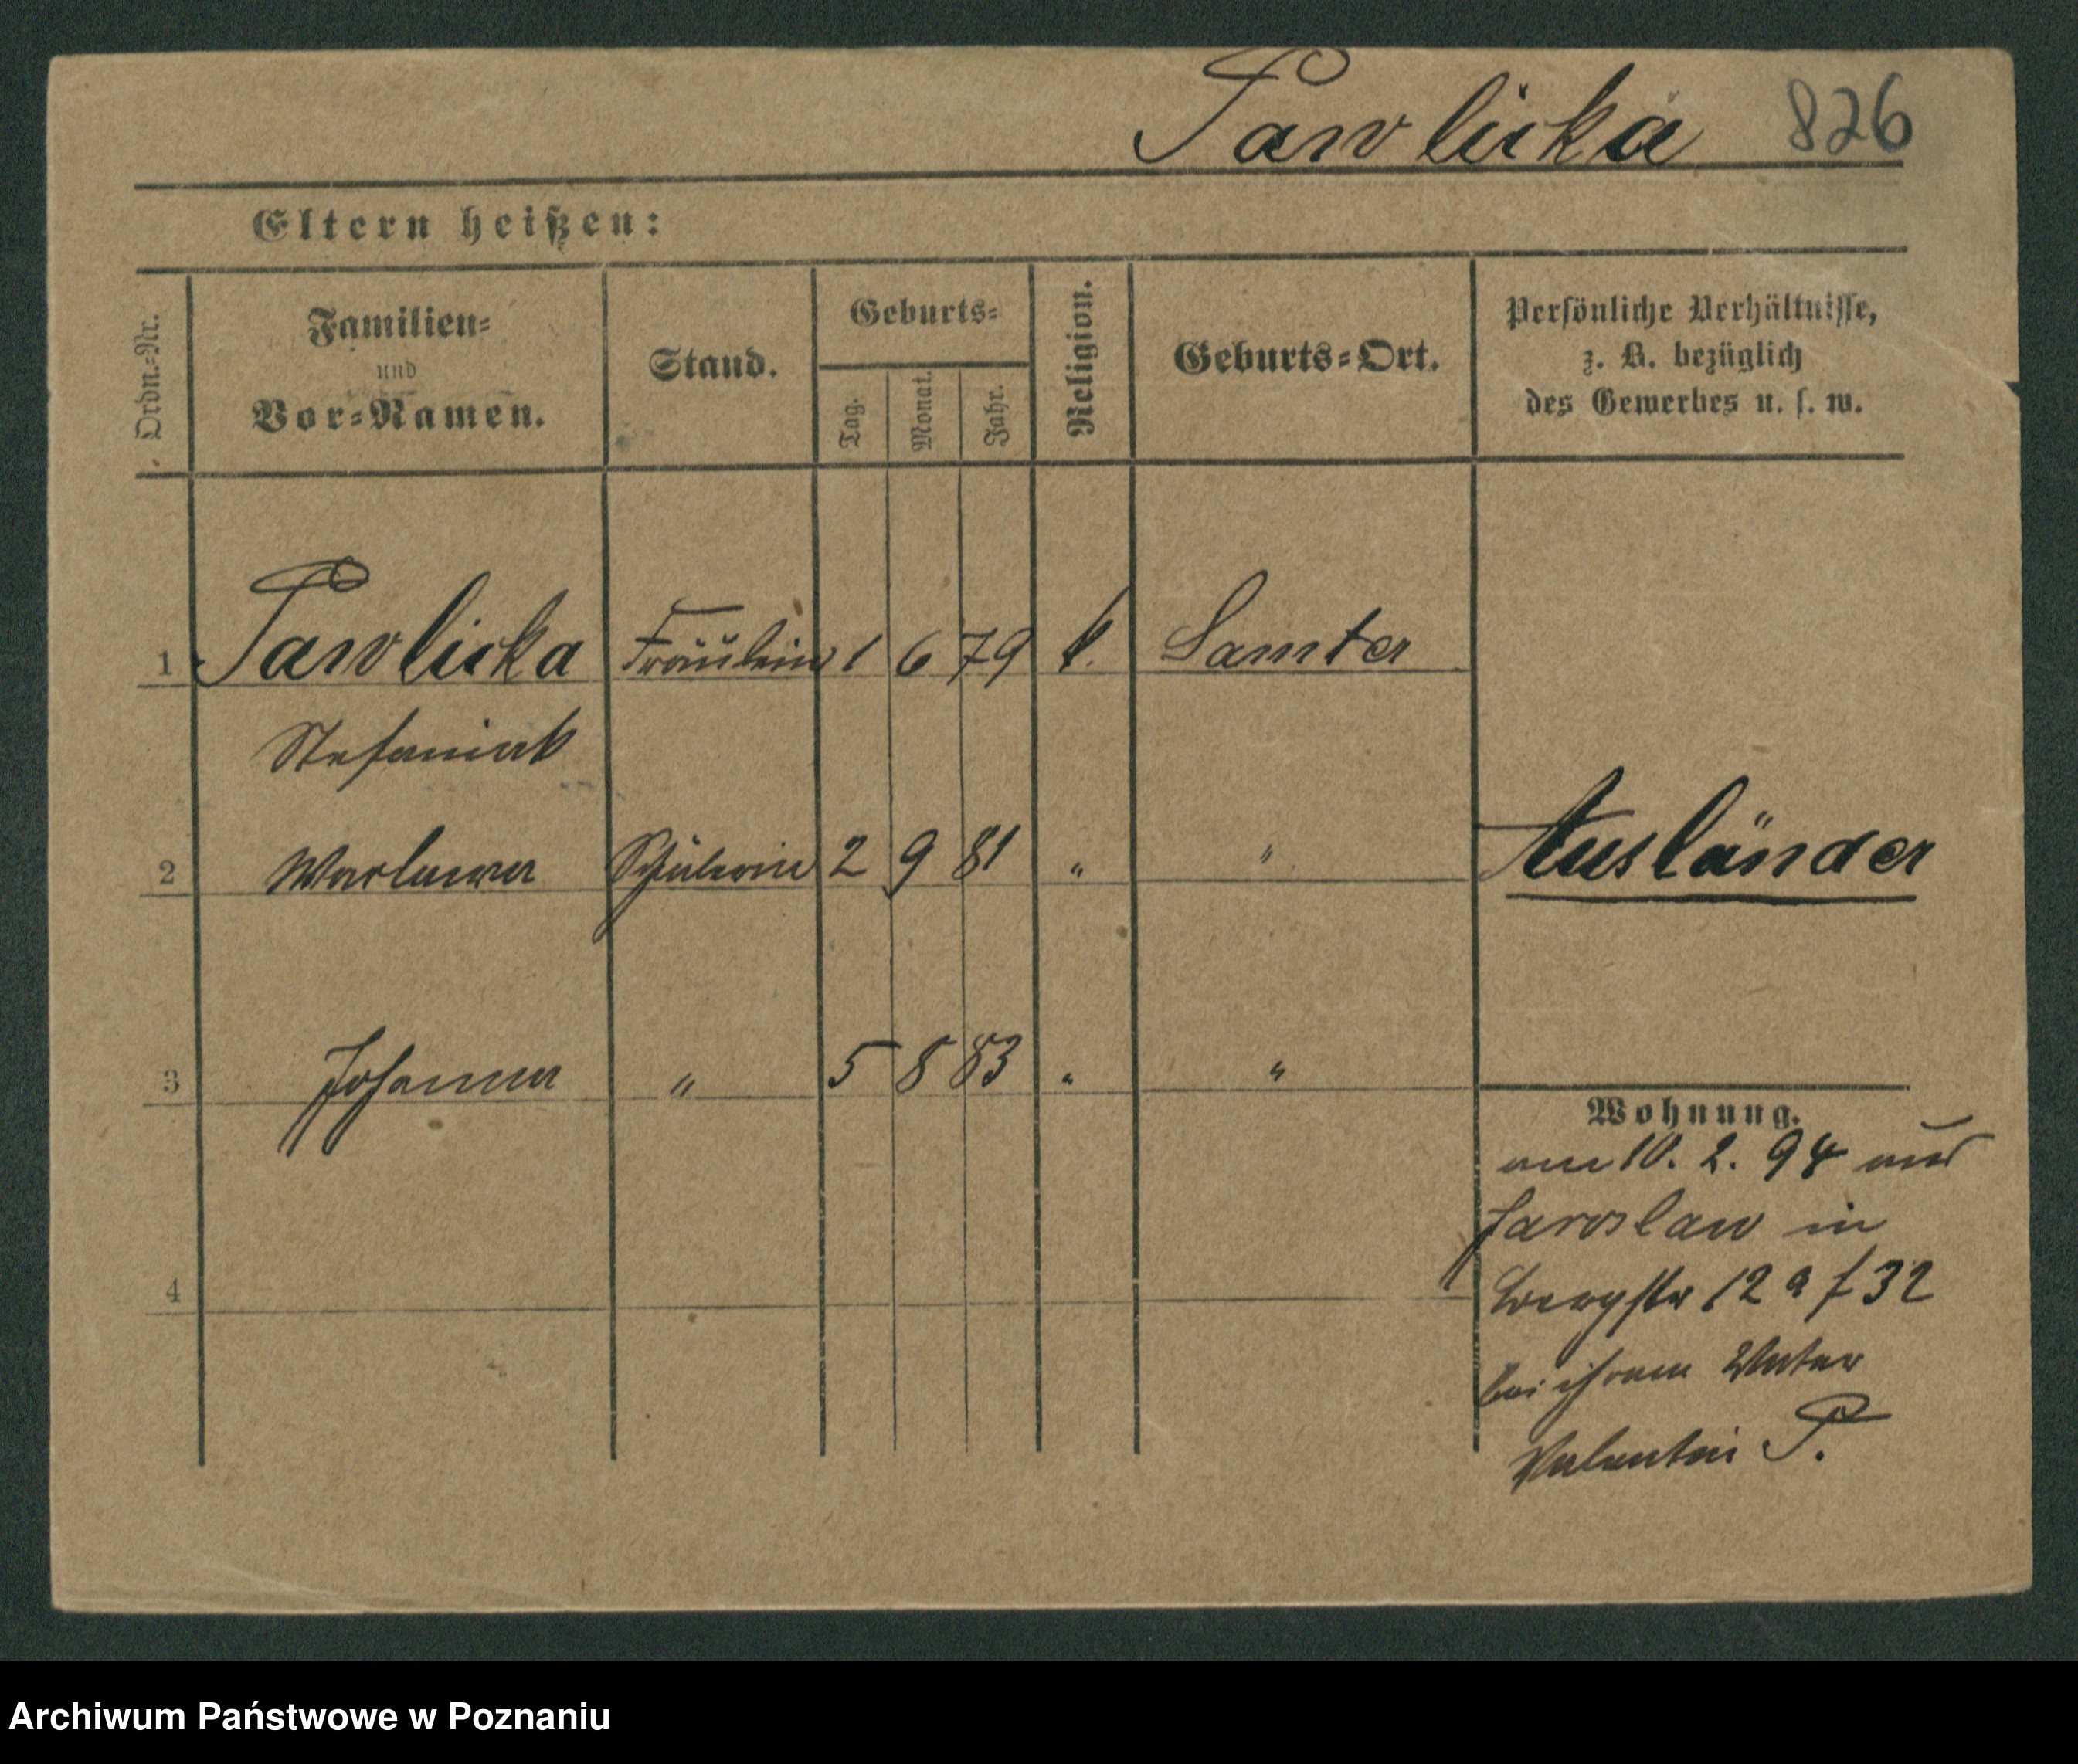 Pawlicka 826
Eltern heißen:
Ordn.-Nr.
Familien-
und
Vor-Namen.
Stand.
Geburts-
Tag.
Monat.
Jahr.
Religion.
Geburts-Ort.
Persönliche Verhältnisse,
z. B. bezüglich
des Gewerbes u. s. w.
1 Pawlicka Fräulein 1 6 79 k. Samter
2 Schülerin 2 9 81 " "
Ausländer
3 Johanna " 5 8 83 " "
4
Wohnung.
am 10. 2. 94 aus
Jaroslaw in
12 a f 32
bei ihrem Vater
Valentin P.
Archiwum Państwowe w Poznaniu